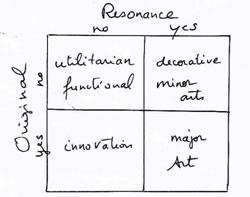 Resonance
no yes
Original
no
yes
utilitarian
functional
decorative
minor
arts
innovation
major
Art